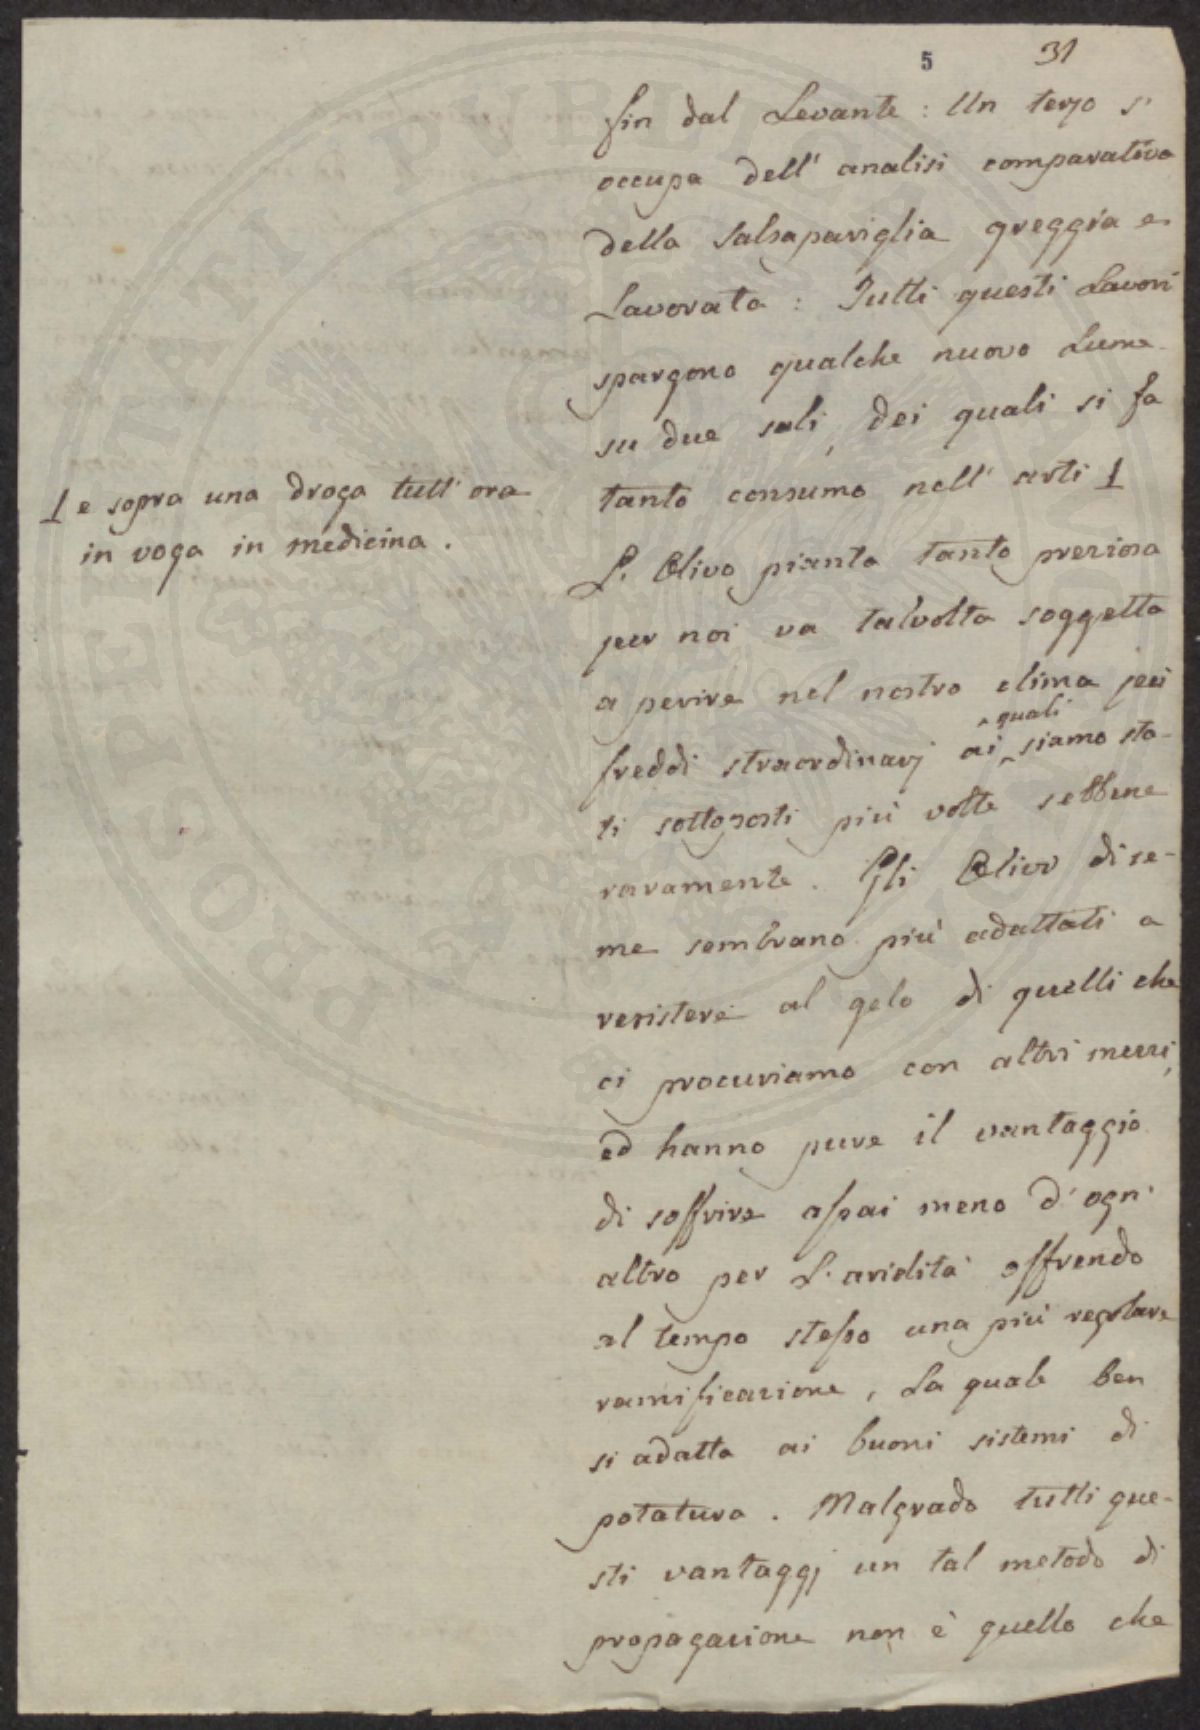 5 31
fin dal Levante : Un terzo s'
occupa dell' analisi comparativa
della Salsapariglia greggia e
Lavorata : Tutti questi Lavori
spargono qualche nuovo Lume
su due sali, dei quali si fa
tanto consumo nell' arti 1
1 e sopra una droga tutt' ora
in voga in medicina .
L' Olivo pianta tanto preziosa
per noi va talvolta soggetta
a perire nel nostro clima pei
quali
freddi straordinarj ai siamo sta-
ti sottoposti più volte sebbene
raramente . Gli Olivi di se-
me sembrano più adattati a
resistere al gelo di quelli che
ci procuriamo con altri mezzi,
ed hanno pure il vantaggio
di soffrire assai meno d' ogni
altro per L' aridità offrendo
al tempo stesso una più regolare
ramificazione , La quale ben
si adatta ai buoni sistemi di
potatura . Malgrado tutti que-
sti vantaggj un tal metodo di
propagazione non è quello che